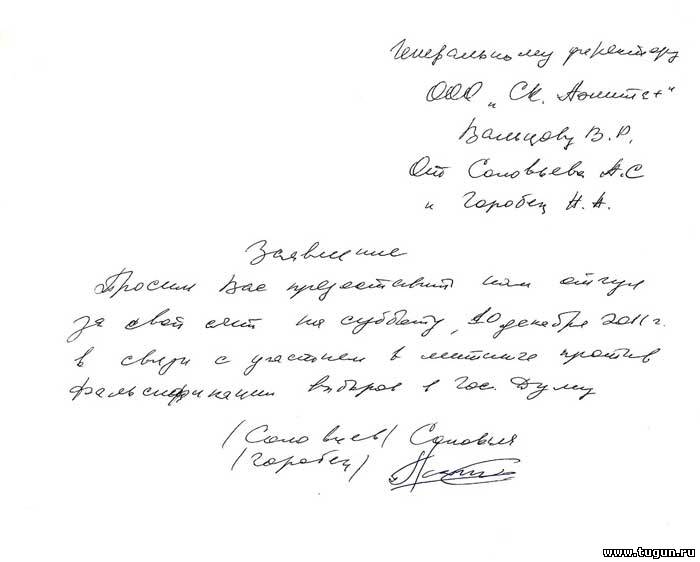 Генеральному директору
ООО „СК.
Вальцову В.Р.
От Соловьева А.С
и Горобец Н.А.
Заявление
Просим Вас предоставить нам отгул
за свой счет на субботу, 10 декабря 2011 г.
в связи с участием в митинге против
фальсификации выборов в Гос. Думу
/Соловьев/ Соловьев
/Горобец/
www.tugun.ru